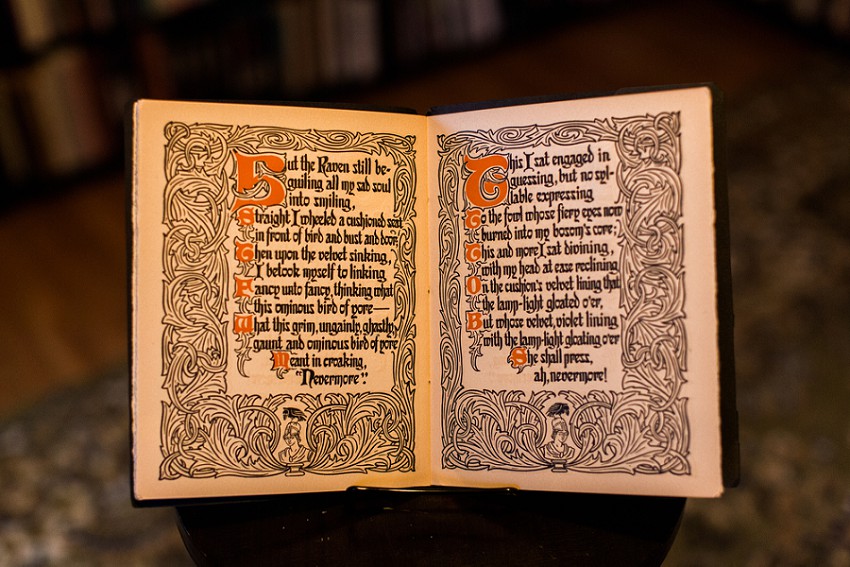 But the Raven still be-
guiling all my sad soul
into smiling,
Straight I wheeled a cushioned seat
in front of bird and bust and door;
Then upon the velvet sinking,
I betook myself to linking
Fancy unto fancy, thinking what
this ominous bird of yore—
What this grim, ungainly, ghastly,
gaunt and ominous bird of yore
Meant in croaking,
"Nevermore".
This I sat engaged in
guessing, but no syl-
lable expressing
To the fowl whose fiery eyes now
burned into my bosom's core;
This and more I sat divining,
with my head at ease reclining
On the cushion's velvet lining that
the lamp-light gloated o'er,
But whose velvet, violet lining,
with the lamp-light gloating o'er
She shall press,
ah, nevermore!